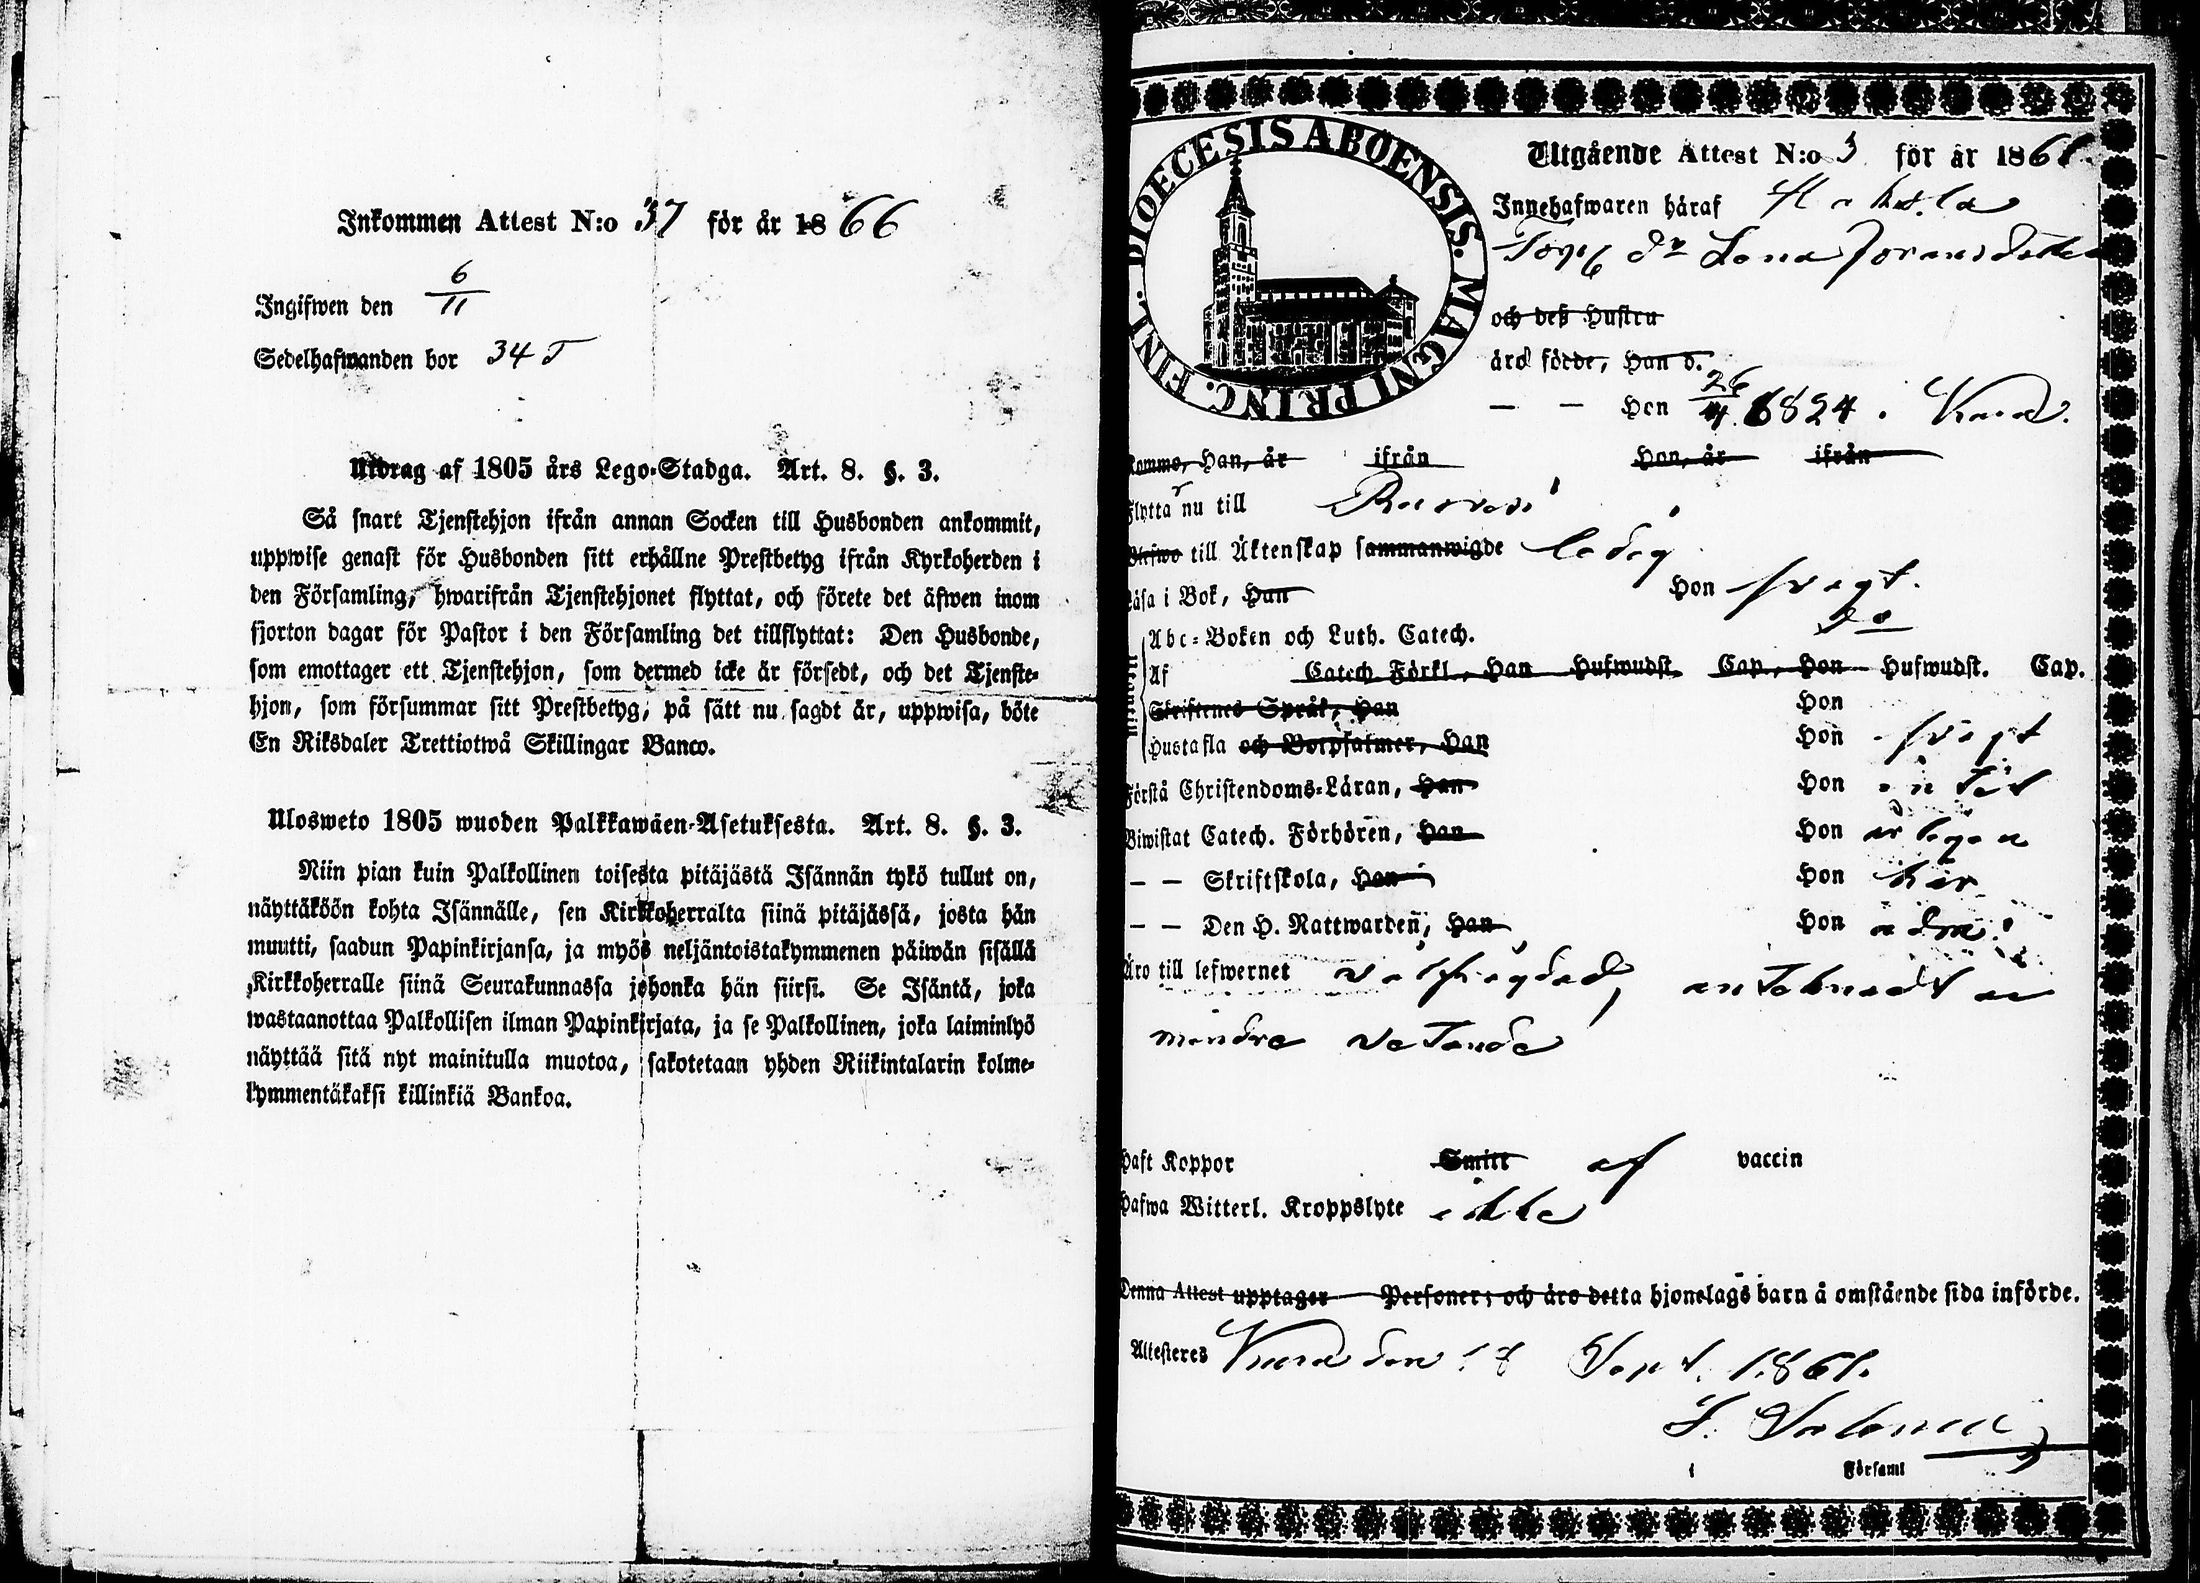 Inkommen Attest N:o 37 för år 1866
Ingifwen den 6/11
Sedelhafwanden bor 34 T
Utdrag af 1805 års Lego-Stadga. Art. 8. §. 3.
Så snart Tjenstehjon ifrån annan Socken till Husbonden ankommit,
uppwise genast för Husbonden sitt erhållne Prestbetyg ifrån Kyrkoherden i
den Församling, hwarifrån Tjenstehjonet flyttat, och förete det äfwen inom
fjorton dagar för Pastor i den Församling det tillflyttat: Den Husbonde,
som emottager ett Tjenstehjon, som dermed icke är försedt, och det Tjenste-
hjon, som försummar sitt Prestbetyg, på sätt nu sagdt är, uppwisa, böte
En Riksdaler Trettiotwå Skillingar Banco.
Ulosweto 1805 wuoden Palkkawäen-Asetuksesta. Art. 8. §. 3.
Niin pian kuin Palkollinen toisesta pitäjästä Isännän tykö tullut on,
näyttäköön kohta Isännälle, sen Kirkkoherralta siinä pitäjässä, josta hän
muutti, saadun Papinkirjansa, ja myös neljäntoistakymmenen päiwän sisällä
Kirkkoherralle siinä Seurakunnassa johonka hän siirsi. Se Isäntä, joka
wastaanottaa Palkollisen ilman Papinkirjata, ja se Palkollinen, joka laiminlyö
näyttää sitä nyt mainitulla muotoa, sakotetaan yhden Riikintalarin kolme-
kymmentäkaksi killinkiä Bankoa.
DIOECESIS ABOENSIS. MAGNI PRINC. FINL.
Utgående Attest N:o 3 för år 1861.
Innehafwaren häraf
Lena
och deß Hustru
äro födde, Han d.
— — Hon 26/4 1824.
Komme, Han, år ifrån Hon, år ifrån
Flyttar nu till
till Äktenskap sammanwigde ledig
Läsa i Bok, Han Hon svagt.
Abc-Boken och Luth. Catech. do
Af Catech. Förkl., Han Hufwudst. Cap., Hon Hufwudst. Cap.
Skriftenes Språk, Han Hon
Hustafla och Botpsalmer, Han Hon svagt
Förstå Christendoms-Läran, Han Hon
Biwistat Catech. Förhören, Han Hon
— — Skriftskola, Han Hon
— — Den H. Nattwarden, Han Hon
Äro till lefwernet välfrägdad,
mindre vetande
Haft Koppor Smitt af vaccin
Hafwa Witterl. Kroppslyte icke
Denna Attest upptager Personer; och äro detta hjonelags barn å omstående sida införde.
Attesteres den 18 Sept. 1861.
i Församl